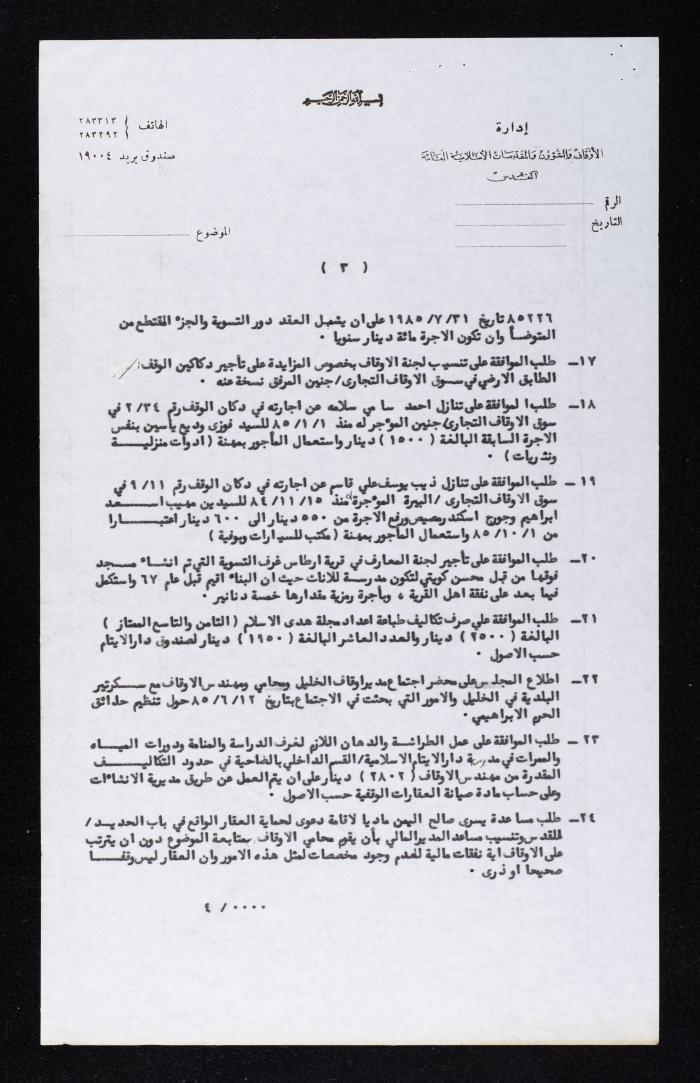 بسم الله الرحمن الرحيم
إدارة
الأوقاف والشؤون والمقدسات الإسلامية العامة
القدس
الهاتف { ٢٨٣٣١٣
٢٨٣٢٩٢
صندوق بريد ١٩٠٠٤
الرقم
التاريخ
الموضوع
( ٣ )
٨٥٢٢٦ تاريخ ٣١ /٧ /١٩٨٥ على ان يشمل العقد دور التسوية والجزء المقتطع من
المتوضأ وان تكون الاجرة مائة دينار سنويا ٠
١٧ـ طلب الموافقة على تنسيب لجنة الاوقاف بخصوص المزايدة على تأجير دكاكين الوقف
الطابق الارضي في سوق الاوقاف التجاري/ جنين المرفق نسخة عنه ٠
١٨ـ طلب الموافقة على تنازل احمد سامي سلامه عن اجارته في دكان الوقف رقم ٢/٣٤ في
سوق الاوقاف التجاري/ جنين المؤجر له منذ ١/ ١/ ٨٥ للسيد فوزى وديع ياسين بنفس
الاجرة السابقة البالغة ( ١٥٠٠ ) دينار واستعمال المأجور بمهنة ( ادوات منزليـــة
ونثريات ) ٠
١٩ ـ طلب الموافقة على تنازل ذيب يوسف علي قاسم عن اجارته في دكان الوقف رقم ٩/١١ في
سوق الاوقاف التجاري / البيرة المؤجرة منذ ١٥ /١١ /٨٤ للسيدين مهيب اســـعد
ابراهيم وجورج اسكندر مصيص ورفع الاجرة من ٥٥٠ دينار الى ٦٠٠ دينار اعتبـــارا
من ١ /١٠ /٨٥ واستعمال المأجور بمهنة ( مكتب للسيارات وبوفية )
٢٠ـ طلب الموافقة على تأجير لجنة المعارف في قرية ارطاس غرف التسوية التي تم انشاء مســجد
فوقها من قبل محسن كويتي لتكون مدرسة للاناث حيث ان البناء اقيم قبل عام ٦٧ واستكمل
فيما بعد على نفقة اهل القرية ، وبأجرة رمزية مقدارها خمسة دنانير ٠
٢١ـ طلب الموافقة على صرف تكاليف طباعة اعداد مجلة هدى الاسلام ( الثامن والتاسع الممتاز )
البالغة ( ٢٥٠٠ ) دينار والعدد العاشر البالغة ( ١٩٥٠ ) دينار لصندوق دار الايتام
حسب الاصول ٠
٢٢ـ اطلاع المجلس على محضر اجتماع مدير اوقاف الخليل ومحامي ومهندس الاوقاف مع سـكرتير
البلدية في الخليل والامور التي بحثت في الاجتماع بتاريخ ١٢ /٦ /٨٥ حول تنظيم حدائق
الحرم الابراهيمي ٠
٢٣ ـ طلب الموافقة على عمل الطراشة والدهان اللازم لغرف الدراسة والمنامة ودورات الميـــاه
والممرات في مدرسة دار الايتام الاسلامية/ القسم الداخلي بالضاحية في حدود التكاليـــف
المقدرة من مهندس الاوقاف ( ٢٨٠٢ ) دينار على ان يتم العمل عن طريق مديرية الانشاءات
وعلى حساب مادة صيانة العقارات الوقفية حسب الاصول ٠
٢٤ـ طلب مساعدة يسرى صالح اليمن ماديا لاقامة دعوى لحماية العقار الواقع في باب الحديـد/
القدس وتنسيب مساعد المدير المالي بأن يقوم محامي الاوقاف بمتابعة الموضوع دون ان يترتب
على الاوقاف اية نفقات مالية لعدم وجود مخصصات لمثل هذه الامور وان العقار ليس وقفـــا
صحيحا او ذرى ٠
٠٠٠٠/ ٤